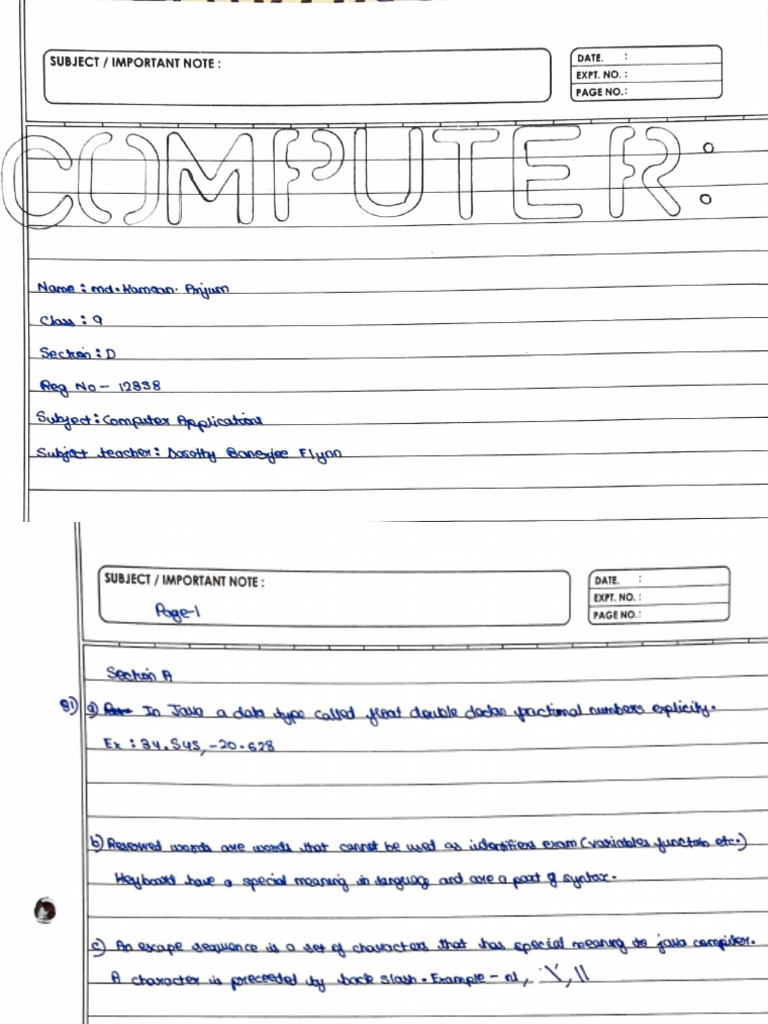 SUBJECT / IMPORTANT NOTE :
DATE. :
EXPT. NO. :
PAGE NO. :
COMPUTER:
Name : md. Hamdan. Anjum
Class : 9
Section : D
Reg No - 12838
Subject : Computer Applications
Subject teacher : Dorothy Banerjee Flynn
SUBJECT / IMPORTANT NOTE :
Page-1
DATE. :
EXPT. NO. :
PAGE NO. :
Section A
Q1) a) In Java a data type called float double declar fractional numbers explicity.
Ex : 34.545, -20.628
b) Reserved words are words that cannot be used as identifiers exam (variables function etc.)
Keyboard have a special meaning in language and are a part of syntax.
c) An escape sequence is a set of characters that has special meaning to java compiler.
A character is preceeded by back slash. Example - \n, \', \\